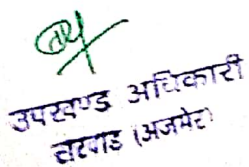 उपखण्ड अधिकारी
सरवाड (अजमेर)